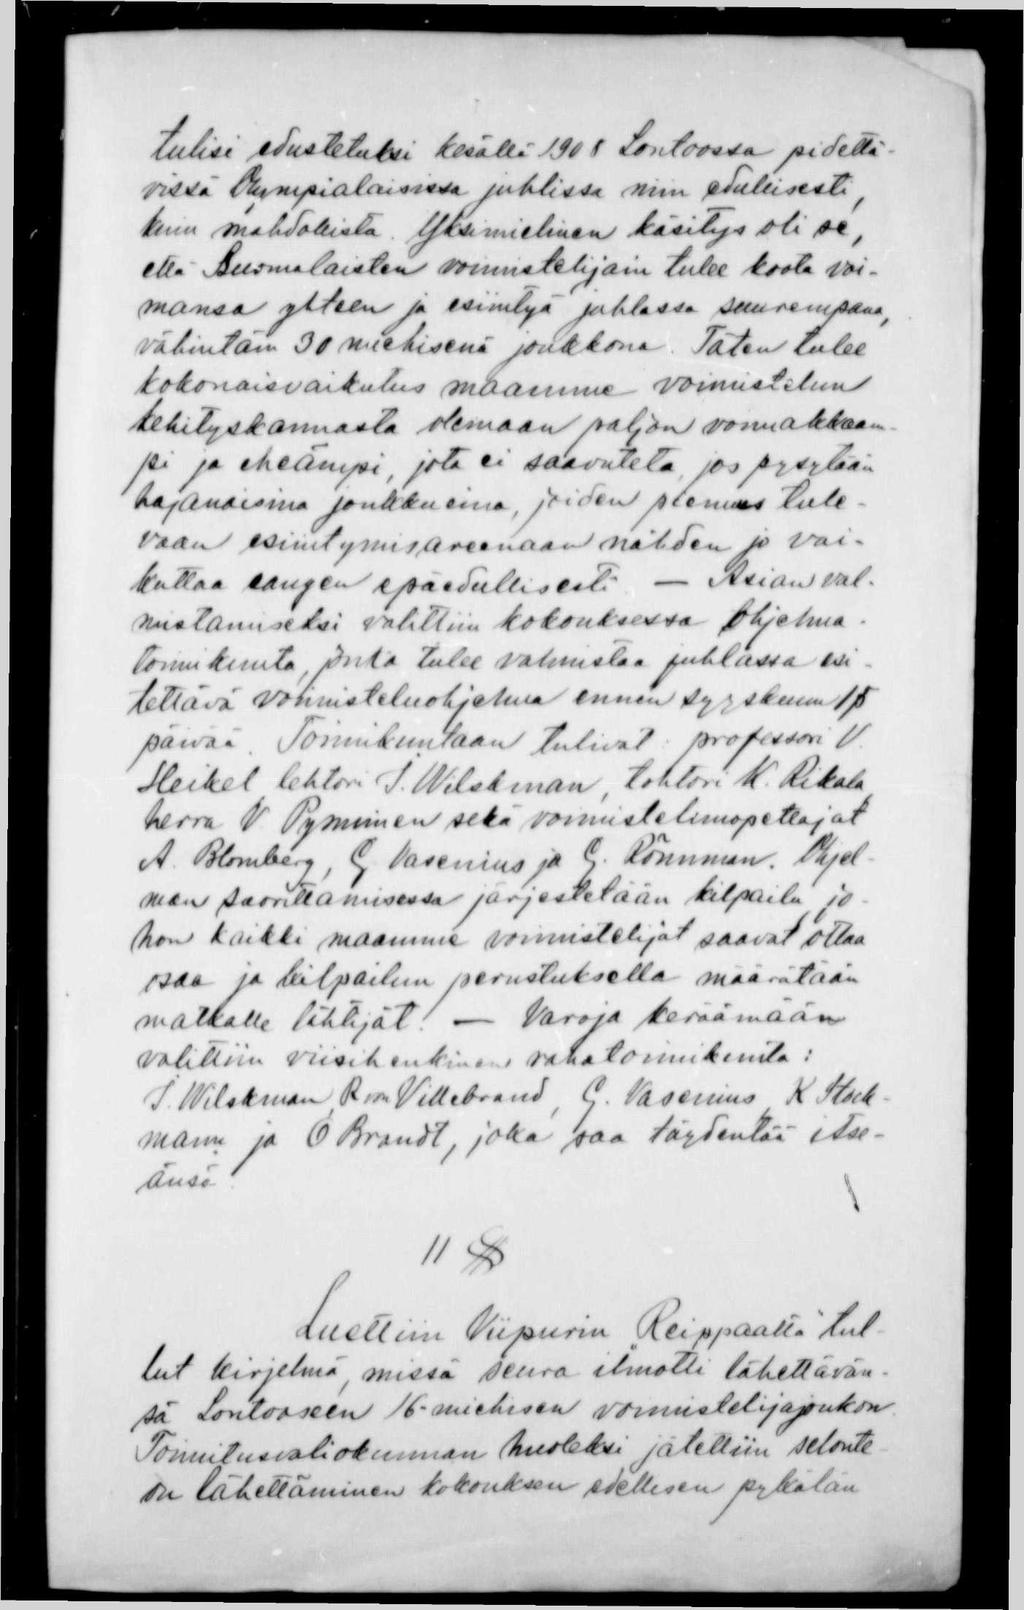 tulisi edustetuksi kesällä 1908 Lontoossa pidettä-
vissä Olympialaisissa juhlissa niin edullisesti,
kuin mahdollista. Yksimielinen käsitys oli se,
että Suomalaisten voimistelijain tulee koota voi-
mansa yhteen ja esiintyä juhlassa suurempana,
vähintäin 30 miehisenä joukkona. Täten tulee
kokonaisvaikutus maamme voimistelun
kehityskannasta olemaan paljon voimakkaam-
pi ja eheämpi, jota ei saavuteta, jos pysytään
hajanaisina joukkueina, joiden pienuus tule-
vaan esiintymisareenaan nähden jo vai-
kuttaa sangen epäedullisesti. — Asian val-
mistamiseksi valittiin kokouksessa ohjelma-
toimikunta, jonka tulee valmistaa juhlassa esi-
tettävä voimisteluohjelma ennen syyskuun 15
päivää. Toimikuntaan tulivat: professori V.
Heikel, lehtori I. Wilskman, tohtori K. Rikala,
herra V Pynninen sekä voimistelunopettajat
A. Blomberg, G. Vasenius ja G. Lönnman. Ohjel-
man suorittamisessa järjestetään kilpailu, jo-
hon kaikki maamme voimistelijat saavat ottaa
osaa ja kilpailun perustuksella määrätään
matkalle lähtijät. — Varoja keräämään
valittiin viisihenkinen rahatoimikunta:
I. Wilskman, R von Villebrand, G. Vasenius, K Stock-
mann ja O Brandt, joka saa täydentää itse-
änsä.
11 §
Luettiin Viipurin "Reippaalta" tul-
lut kirjelmä, missä seura ilmotti lähettävän-
sä Lontooseen 16-miehisen voimistelijajoukon.
Toimitusvaliokunnan huoleksi jätettiin selonte-
on lähettäminen kokouksen edellisen pykälän